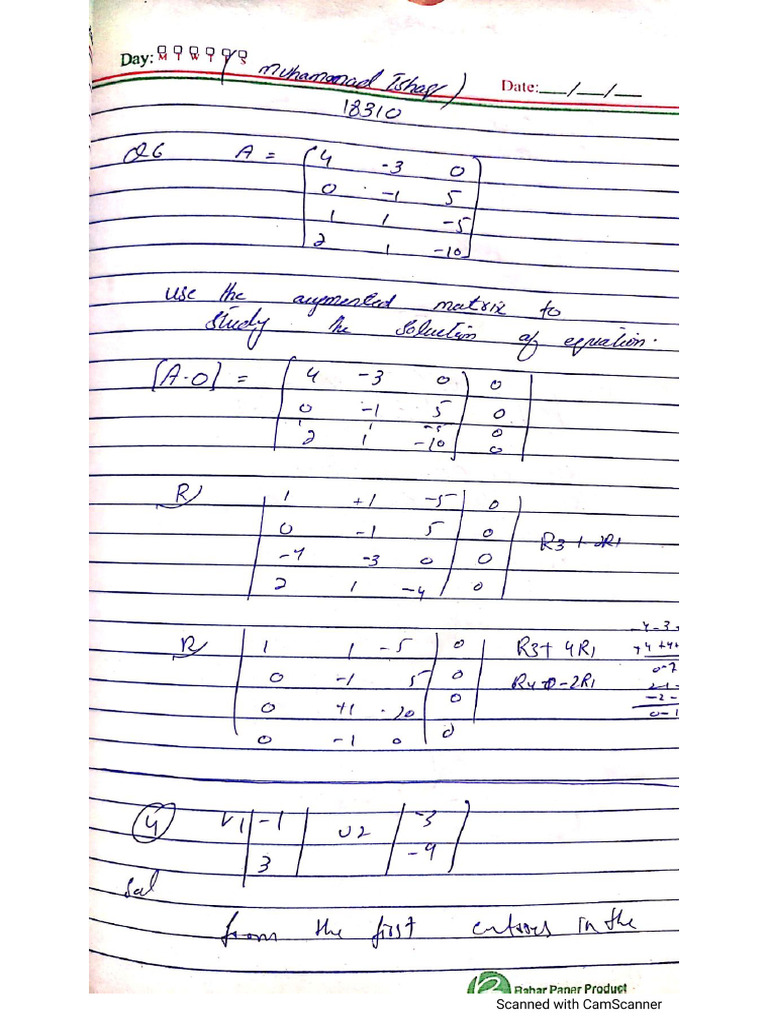 Day: M T W T F S (Muhammad Ishaq) Date:__/__/__
18310
Q6 A = 4 -3 0
0 -1 5
1 1 -5
2 1 -10
use the augmented matrix to
study the solution of equation.
[A·0] = 4 -3 0 0
0 -1 5 0
1 1 -5 0
2 1 -10 0
R 1 +1 -5 0
0 -1 5 0
-4 -3 0 0 R3 + 2R1
2 1 -4 0
R 1 1 -5 0 R3+ 4R1
0 -1 5 0 -2R1
0 +1 -20 0
0 -1 0 0
4 V1 -1 U2 -3
3 -9
Sol
from the first entries in the
Bahar Paper Product
Scanned with CamScanner